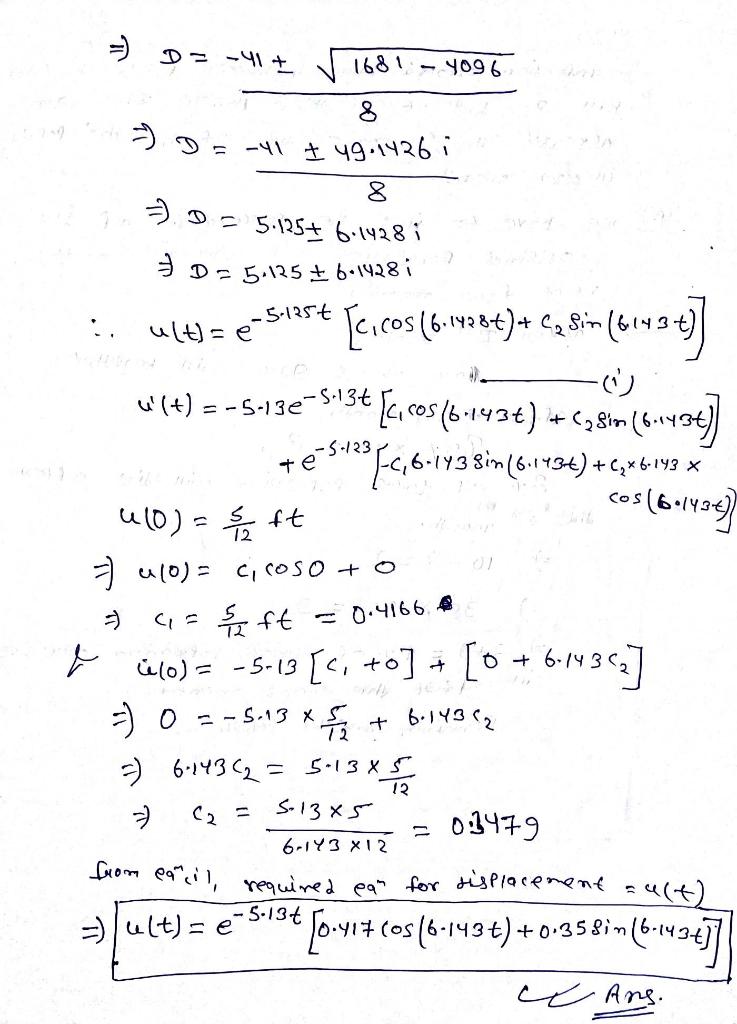 ⇒ D = -41 ± √1681 - 4096
8
⇒ D = -41 ± 49.1426 i
8
⇒ D = 5.125 ± 6.1428 i
⇒ D = 5.125 ± 6.1428 i
∴ u(t) = e^-5.125t [C₁ cos (6.1428t) + C₂ Sin (6.143t)]
(i)
u'(t) = -5.13e^-5.13t [C₁ cos (6.143t) + C₂ Sin (6.143t)]
+ e^-5.123 [-C₁ 6.143 Sin (6.143t) + C₂ × 6.143 ×
cos (6.143t)]
u(0) = 5/12 ft
⇒ u(0) = C₁ cos 0 + 0
⇒ C₁ = 5/12 ft = 0.4166
u̇(0) = -5.13 [C₁ + 0] + [0 + 6.143 C₂]
⇒ 0 = -5.13 × 5/12 + 6.143 C₂
⇒ 6.143 C₂ = 5.13 × 5/12
⇒ C₂ = 5.13 × 5 / 6.143 × 12 = 0.3479
from eqⁿ (i), required eqⁿ for displacement = u(t)
⇒ u(t) = e^-5.13t [0.417 cos (6.143t) + 0.35 Sin (6.143t)]
Ans.